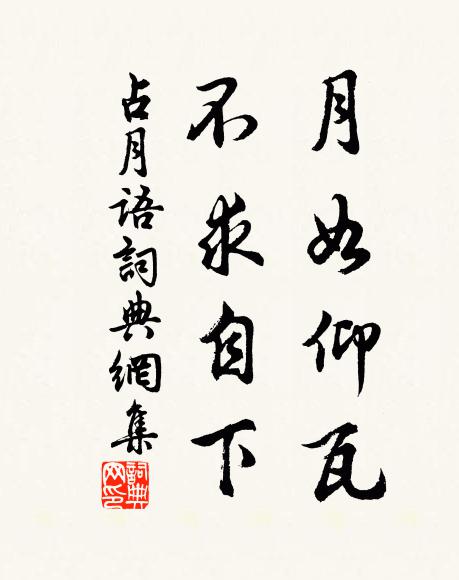 月如仰瓦
不求自下
占月語詞典網集
詞典网印